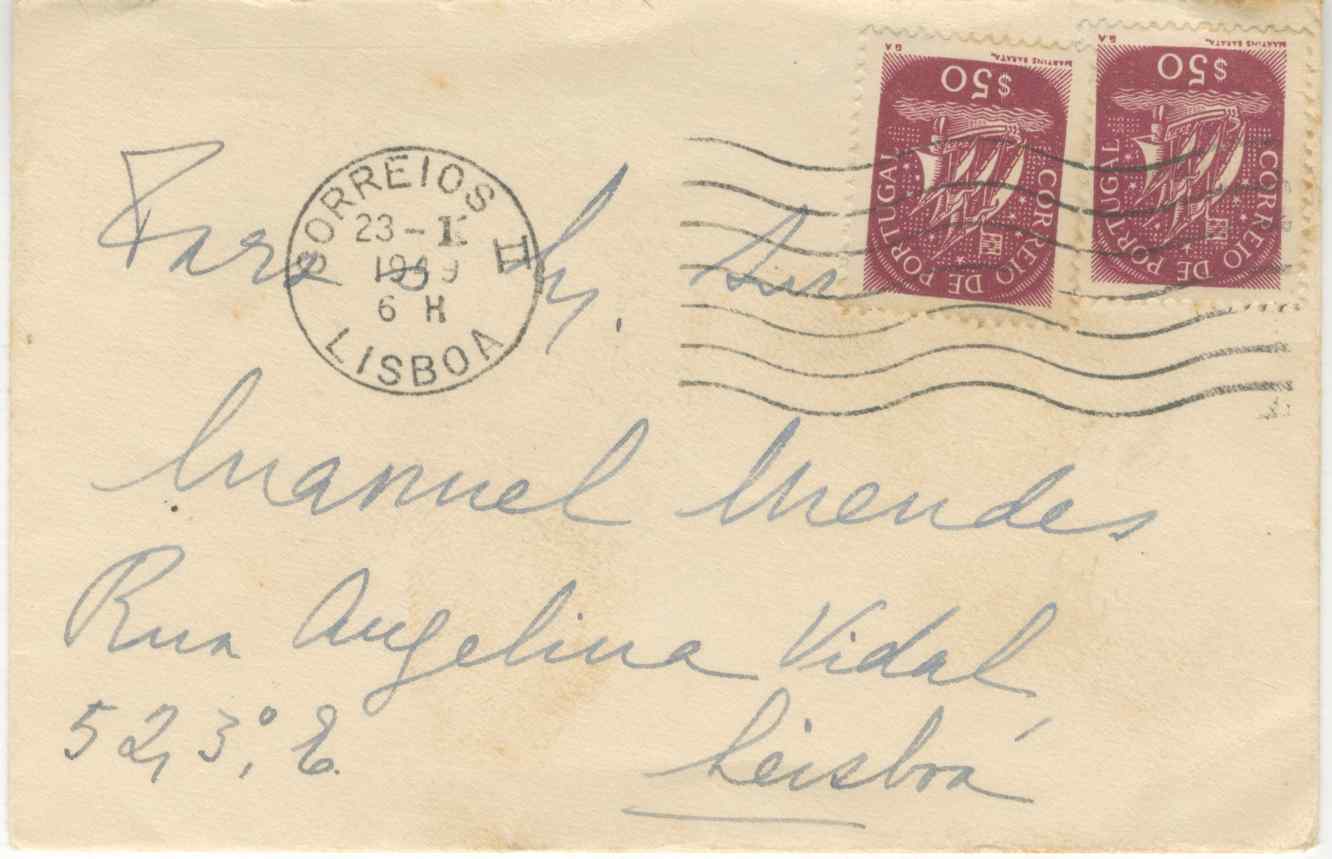 $50
$50
MARTINS BARATA
MARTINS BARATA
CORREIO DE PORTUGAL
CORREIO DE PORTUGAL
CORREIOS II
1949
6 H
LISBOA
Manuel Mendes
Rua Angelina Vidal
52, 3º, E.
Lisboa